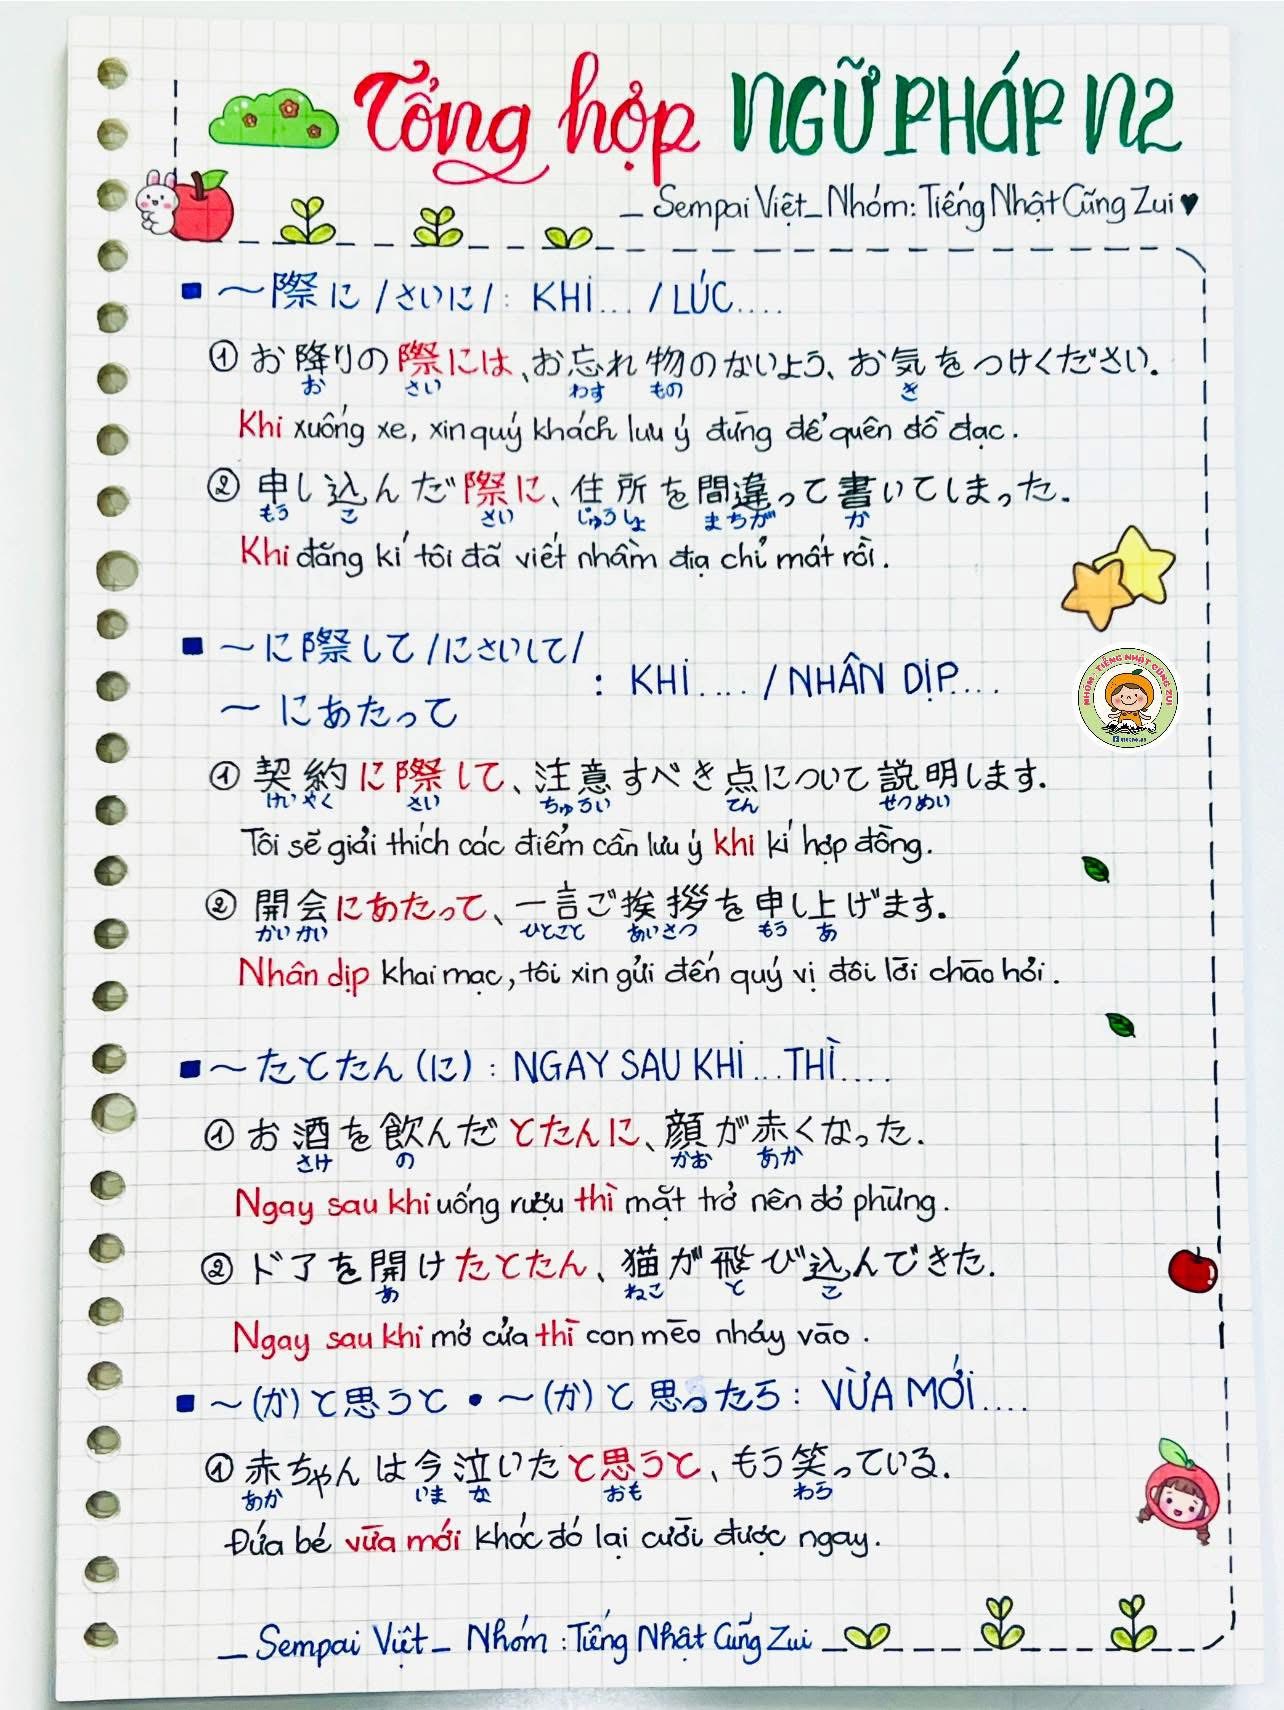 Tổng hợp NGỮ PHÁP N2
_ Sempai Việt_ Nhóm: Tiếng Nhật Cũng Zui ♥
■ ～際に /さいに/: KHI... /LÚC....
① お降りの際には、お忘れ物のないよう、お気をつけください.
お さい わす もの き
Khi xuống xe, xin quý khách lưu ý đừng để quên đồ đạc.
② 申し込んだ際に、住所を間違って書いてしまった.
もう こ さい じゅうしょ まちが か
Khi đăng kí tôi đã viết nhầm địa chỉ mất rồi.
■ ～に際して /にさいして/
～にあたって
: KHI.... /NHÂN DỊP....
NHÓM - TIẾNG NHẬT CŨNG ZUI
① 契約に際して、注意すべき点について説明します.
けいやく さい ちゅうい てん せつめい
Tôi sẽ giải thích các điểm cần lưu ý khi kí hợp đồng.
② 開会にあたって、一言ご挨拶を申し上げます.
かいかい ひとこと あいさつ もう あ
Nhân dịp khai mạc, tôi xin gửi đến quý vị đôi lời chào hỏi.
■ ～たとたん (に) : NGAY SAU KHI...THÌ....
① お酒を飲んだとたんに、顔が赤くなった.
さけ の かお あか
Ngay sau khi uống rượu thì mặt trở nên đỏ phừng.
② ドアを開けたとたん、猫が飛び込んできた.
あ ねこ と こ
Ngay sau khi mở cửa thì con mèo nhảy vào.
■ ～(か)と思うと • ～(か)と思ったら: VỪA MỚI....
① 赤ちゃんは今泣いたと思うと、もう笑っている.
あか いま な おも わら
Đứa bé vừa mới khóc đó lại cười được ngay.
_ Sempai Việt_ Nhóm : Tiếng Nhật Cũng Zui